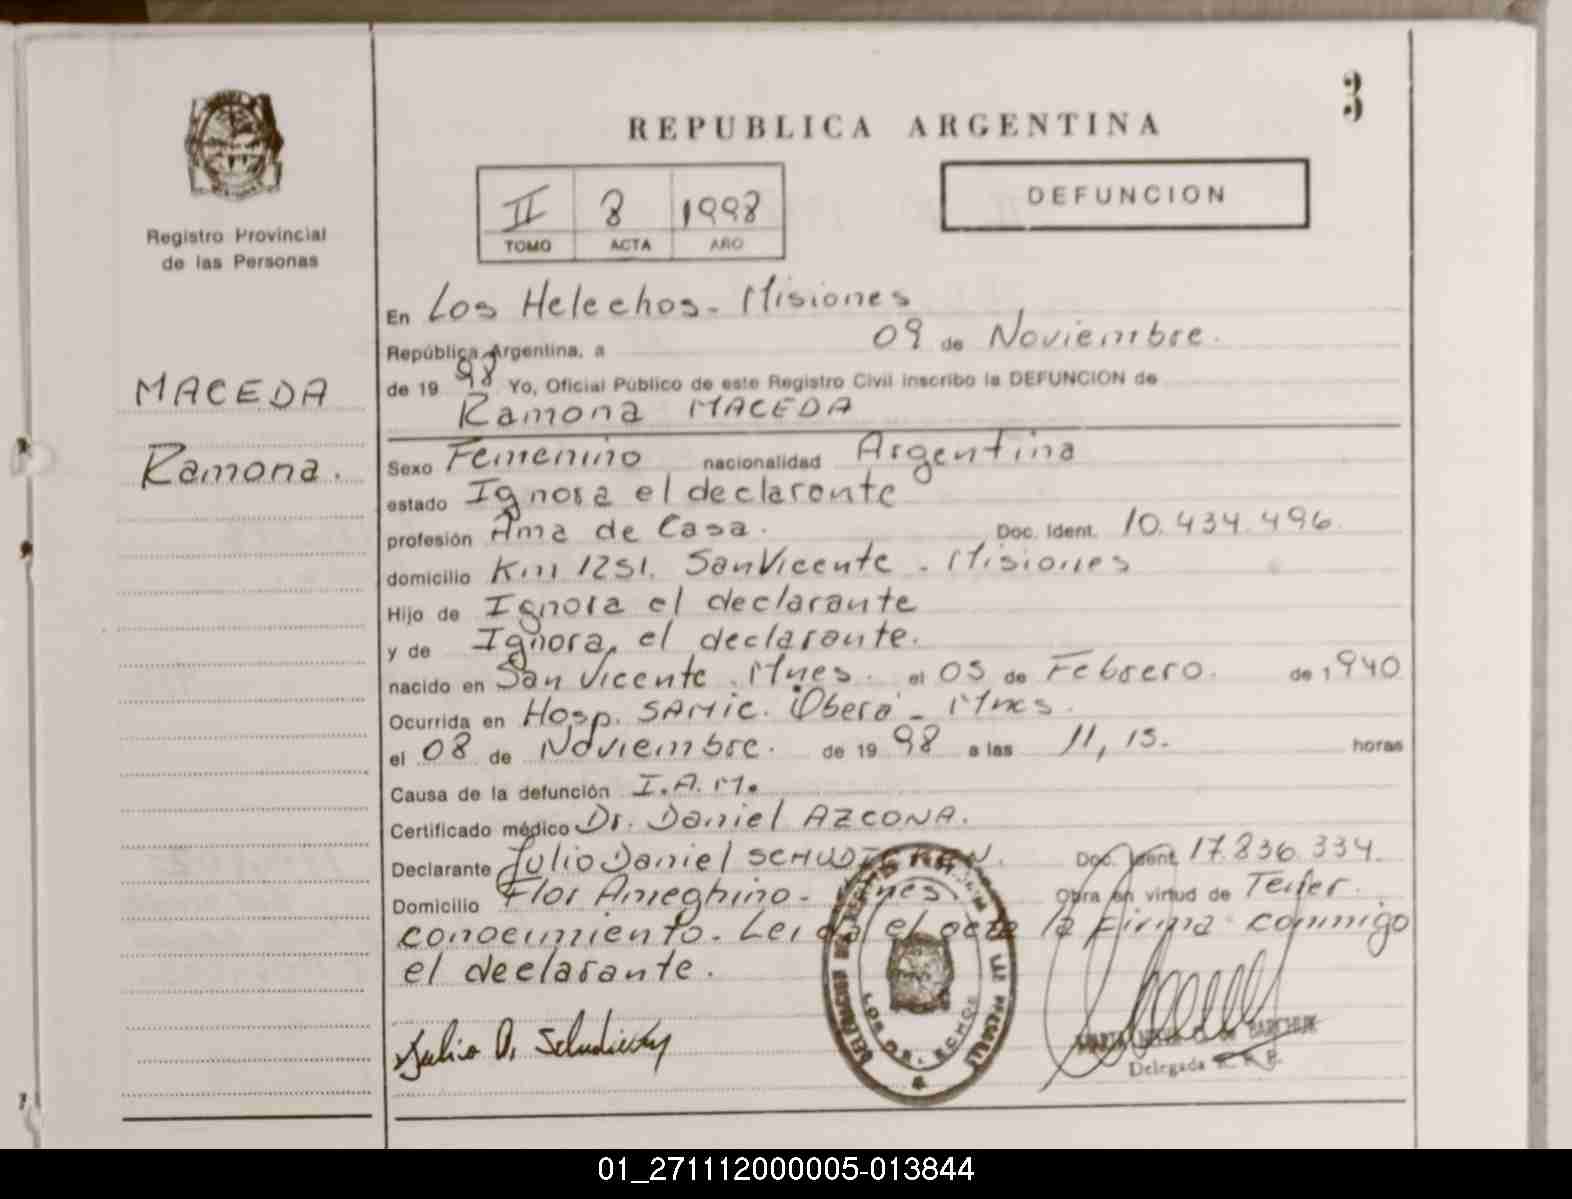 3
REPUBLICA ARGENTINA
Registro Provincial
de las Personas
II 8 1998
TOMO ACTA AÑO
DEFUNCION
MACEDA
Ramona.
En Los Helechos - Misiones
República Argentina, a 09 de Noviembre.
de 19 98 Yo, Oficial Público de este Registro Civil inscribo la DEFUNCION de
Ramona MACEDA
Sexo Femenino nacionalidad Argentina
estado Ignora el declarante
profesión Ama de Casa. Doc. Ident. 10.434.496
domicilio Km 1251. San Vicente - Misiones
Hijo de Ignora el declarante
y de Ignora el declarante.
nacido en San Vicente. Mnes. el 05 de Febrero. de 1940
Ocurrida en Hosp. SAMIC. Oberá - Mnes.
el 08 de Noviembre. de 19 98 a las 11,15. horas
Causa de la defunción I.A.M.
Certificado médico Dr. Daniel AZCONA.
Declarante Julio Daniel Doc. Ident. 17.836.334.
Domicilio Flor Ameghino - Mnes. Obra en virtud de Tener
conocimiento. Leida el acta la firma conmigo
el declarante.
Julio D.
Delegada
01_271112000005-013844